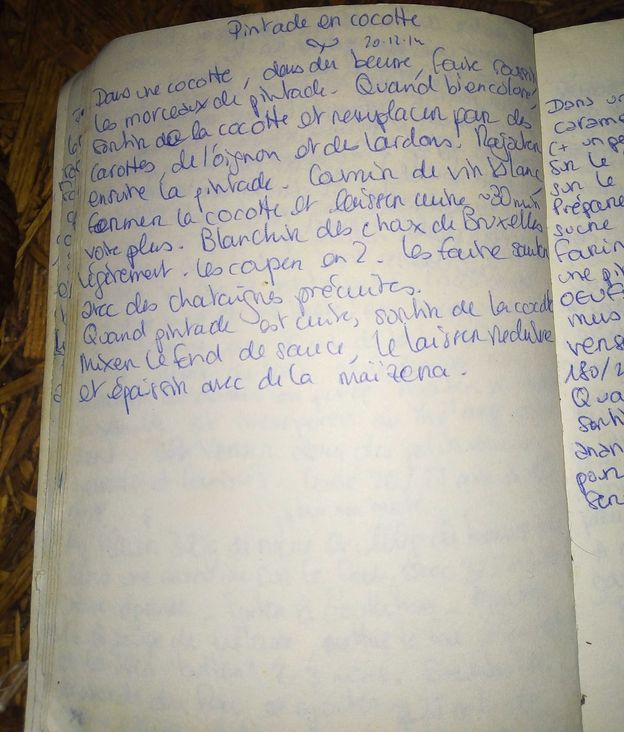 Pintade en cocotte
20.12.14
Dans une cocotte, dans du beurre, faire roussir
les morceaux de pintade. Quand bien coloré,
sortir de la cocotte et remplacer par des
carottes, de l'oignon et des lardons. Rajouter
ensuite la pintade. Couvrir de vin blanc
fermer la cocotte et laisser cuire ~30 min
voire plus. Blanchir des choux de Bruxelles
légèrement. les couper en 2. les faire sauter
avec des chataignes précuites.
Quand pintade est cuite, sortir de la cocotte
mixer le fond de sauce, le laisser réduire
et épaissir avec de la maïzena.
Dans un
carame
(+ un pe
sur le
sur le
Prépare
sucre
farin
une pi
OEUF
mus
verse
180/2
Qua
sortir
anan
pour
ser